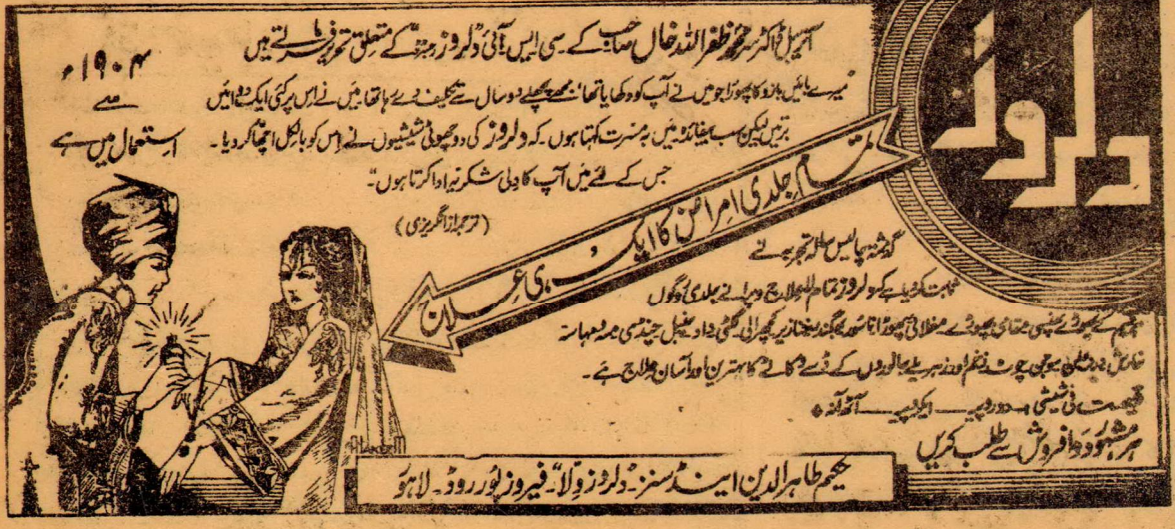 دلروز
آنریبل ڈاکٹر سر محمد ظفر اللہ خاں صاحب کے۔ سی ایس آئی دلروز کے متعلق تحریر فرماتے ہیں
میرے بائیں بازو کا پھوڑا جو میں نے آپ کو دکھایا تھا مجھے پچھلے دو سال سے تکلیف دے رہا تھا میں نے اس پر کئی ایک دوائیں
برتیں لیکن سب بیفائدہ میں بمسرت کہتا ہوں۔ کہ دلروز کی دو چھوٹی شیشیوں نے اس کو بالکل اچھا کر دیا۔
جس کے لئے میں آپ کا دلی شکریہ ادا کرتا ہوں"
(ترجمہ از انگریزی)
۱۹۰۴ء
سے
استعمال میں ہے
تمام جلدی امراض کا ایک ہی علاج
گزشتہ چالیس سالہ تجربہ نے
ثابت کر دیا ہے کہ دلروز تمام لاعلاج و پرانے جلدی روگوں
کے پھوڑے پھنسی مقامی پھوڑے ناسور بھگندر خنازیر گلٹی داد چنبل
خارش چوٹ زخم اور زہریلے جانوروں کے ڈسے کاٹے کا بہترین اور آسان علاج ہے۔
قیمت فی شیشی دو روپیہ ایک روپیہ آٹھ آنہ
ہر مشہور دوا فروش سے طلب کریں
حکیم طاہر الدین اینڈ سنز۔ "دلروز ولا" فیروز پور روڈ۔ لاہور